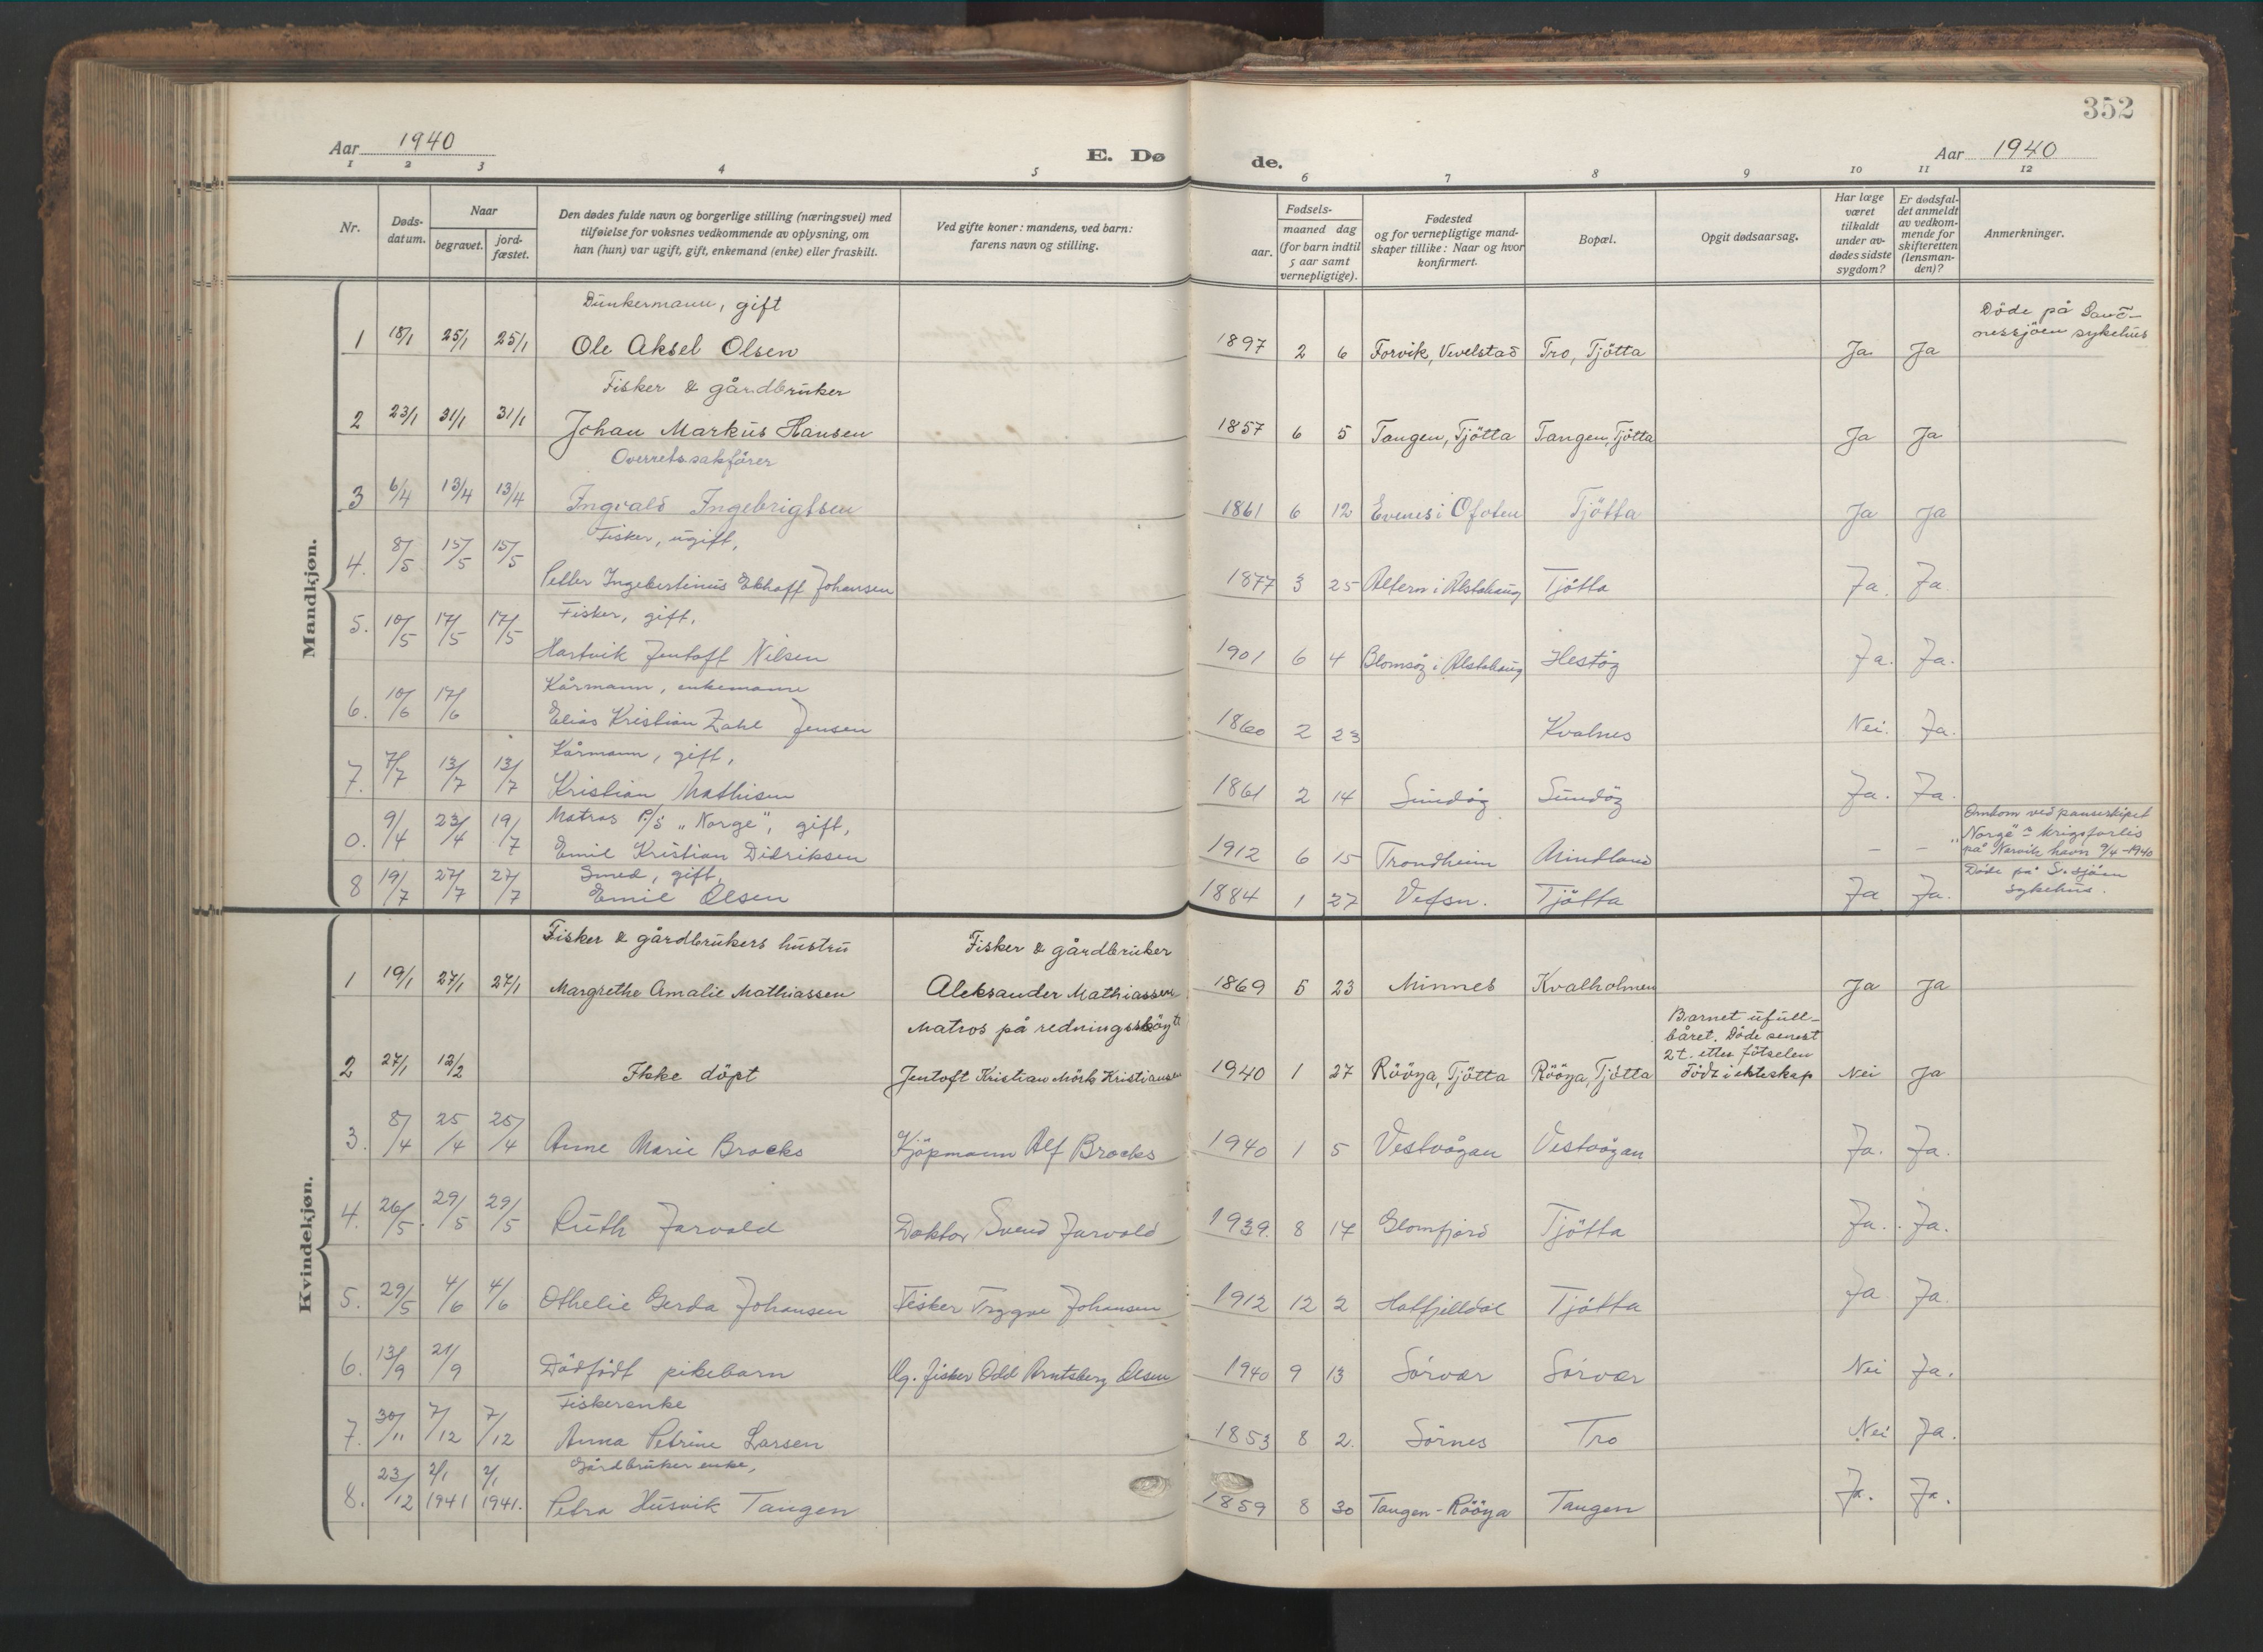 352
Aar 1940
E. Dø
de.
Aar 1940
1 2 3 4 5 6 7 8 9 10 11 12
Nr.
Døds-
datum.
Naar
begravet.
jord-
fæstet.
Den dødes fulde navn og borgerlige stilling (næringsvei) med
tilføielse for voksnes vedkommende av oplysning, om
han (hun) var ugift, gift, enkemand (enke) eller fraskilt.
Ved gifte koner: mandens, ved barn:
farens navn og stilling.
Fødsels-
aar.
maaned dag
(for barn indtil
5 aar samt
vernepligtige).
Fødested
og for vernepligtige mand-
skaper tillike: Naar og hvor
konfirmert.
Bopæl.
Opgit dødsaarsag.
Har læge
været
tilkaldt
under av-
dødes sidste
sygdom?
Er dødsfal-
det anmeldt
av vedkom-
mende for
skifteretten
(lensman-
den)?
Anmerkninger.
Mandkjøn.
Dunkermann, gift
1 18/1 25/1 25/1 Ole Aksel Olsen 1897 2 6 Forvik, Vevelstad Tro, Tjötta Ja Ja
Döde på Sand-
nessjöen sykehus
Fisker & gårdbruker
2 23/1 31/1 31/1 Johan Markus Hansen 1857 6 5 Tangen, Tjötta Tangen, Tjötta Ja Ja
Overretssakförer
3 6/4 13/4 13/4 Ingvald Ingebrigtsen 1861 6 12 Evenes i Ofoten Tjötta Ja Ja
Fisker, ugift,
4. 8/5 15/5 15/5 Petter Ingebertinus Ekhoff Johansen 1877 3 25 Altern i Alstahaug Tjötta Ja. Ja.
Fisker, gift,
5. 10/5 17/5 17/5 Hartvik Jentoft Nilsen 1901 6 4 Blomsöy i Alstahaug Hestöy Ja. Ja.
Kårmann, enkemann
6. 10/6 17/6 Elias Kristian Zahl Jensen 1860 2 23 Kvalnes Nei. Ja.
Kårmann, gift,
7. 7/7 13/7 13/7 Kristian Mathisen 1861 2 14 Sundöy Sundöy Ja. Ja.
Matros P/S "Norge", gift,
0. 9/4 23/4 19/7 Emil Kristian Didriksen 1912 6 15 Trondheim Mindland – –
Omkom ved panserskipet
"Norge" krigsforlis
på Narvik havn 9/4-1940
Smed, gift,
8 19/7 27/7 27/7 Emil Olsen 1884 1 27 Vefsn. Tjötta Ja Ja.
Döde på S.sjöen
sykehus.
Kvindekjøn.
Fisker & gårdbrukers hustru Fisker & gårdbruker
1 19/1 27/1 27/1 Margrethe Amalie Mathiassen Aleksander Mathiassen 1869 5 23 Minnes Kvalholmen Ja Ja
Matros på redningsskøyte
Barnet ufull-
båret. Döde senest
2 t. etter fötselen
Född i ekteskap
2 27/1 12/2 Ikke döpt Jentoft Kristian Mörk Kristiansen 1940 1 27 Rööya, Tjötta Rööya, Tjötta Nei Ja
3. 8/4 25/4 25/4 Anne Marie Brocks Kjöpmann Alf Brocks 1940 1 5 Vestvågan Vestvågan Ja. Ja.
4. 26/5. 29/5 29/5 Ruth Jarvold Doktor Svend Jarvold 1939. 8 17 Glomfjord Tjötta Ja. Ja.
5. 29/5 4/6 4/6 Othelie Gerda Johansen Fisker Trygve Johansen 1912 12 2 Hatfjelldal Tjötta Ja Ja.
6. 13/9 21/9 Dödfödt pikebarn Ug. fisker Odd Arntsberg Olsen 1940 9 13 Sörvær Sörvær Nei Ja.
Fiskerenke
7. 30/11 7/12 7/12 Anna Petrine Larsen 1853 8 2. Sörnes Tro Nei Ja.
Gårdbruker enke,
8. 23/12 2/1 1941 2/1 1941. Petra Husvik Tangen 1859 8 30 Tangen - Rööya Tangen Ja. Ja.